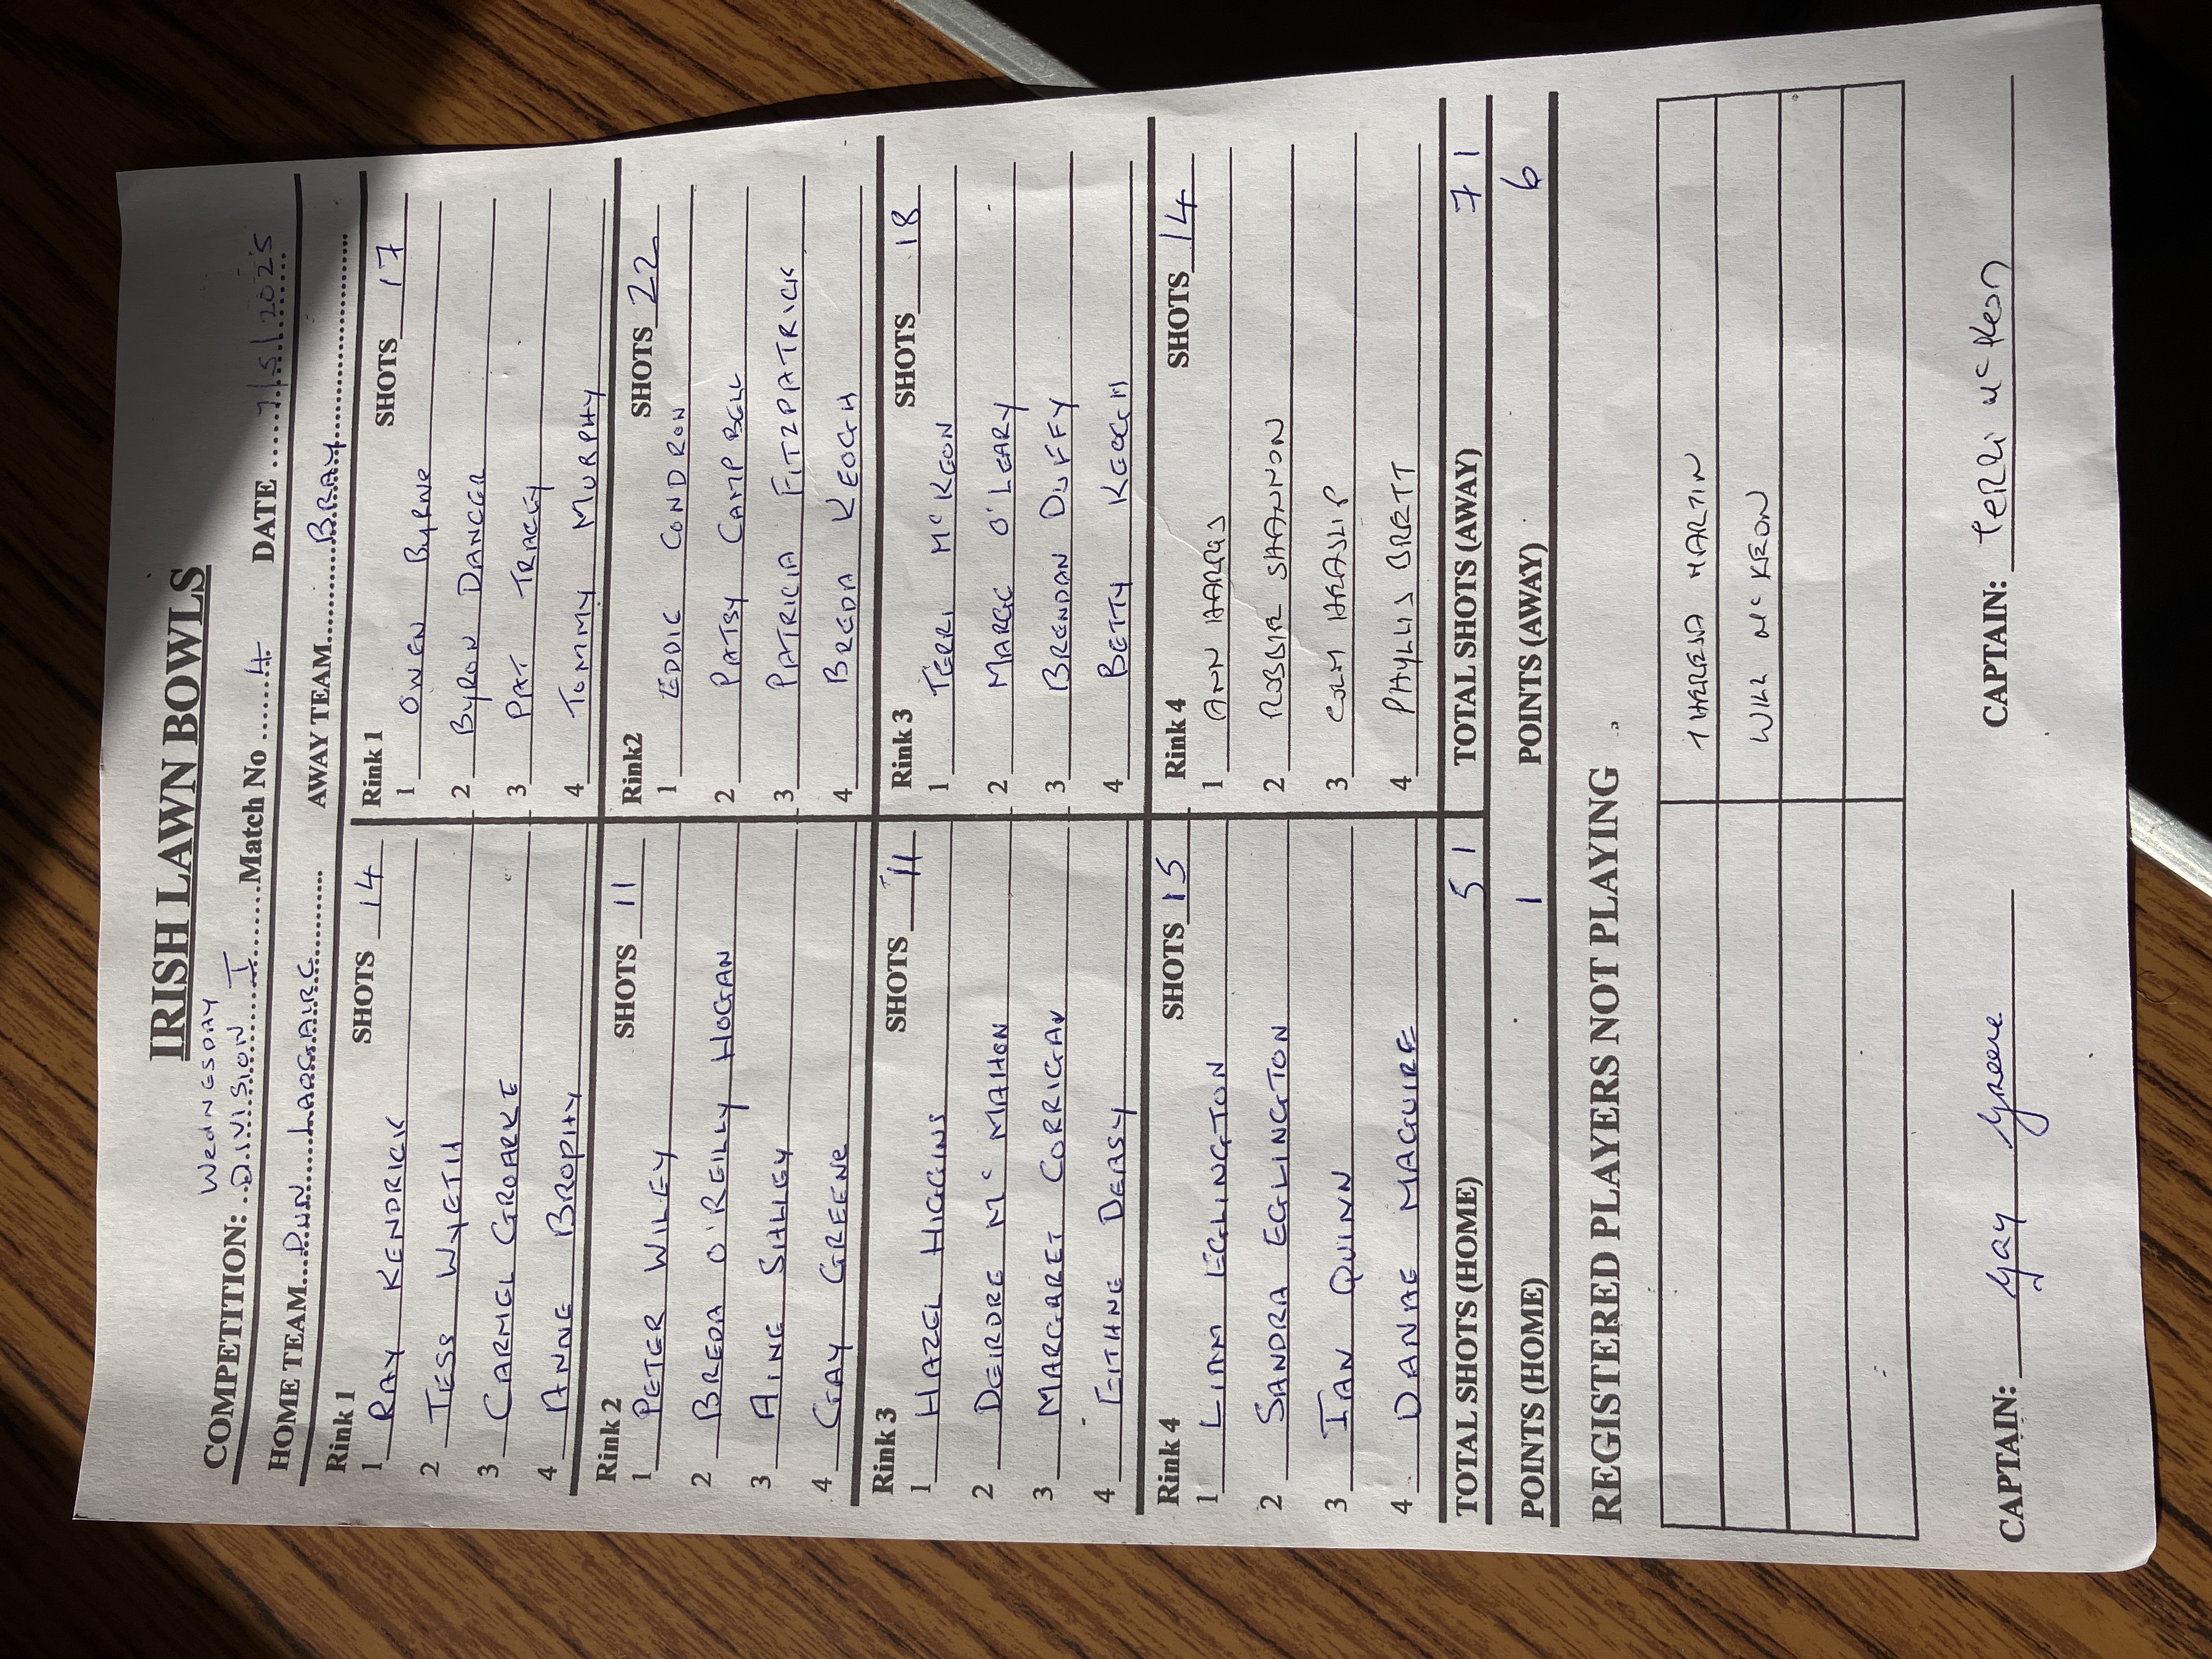 IRISH LAWN BOWLS
WEDNESDAY
COMPETITION: ..DIVISION I.......Match No ......4 DATE ......7/5/2025
HOME TEAM...DUN LAOGHAIRE.......... AWAY TEAM........BRAY.....................
Rink 1 SHOTS 14
1 RAY KENDRICK
2 TESS WYETH
3 CARMEL GROARKE
4 ANNE BROPHY
Rink 1 SHOTS 17
1 OWEN BYRNE
2 BYRON DANCER
3 PAT TRACEY
4 TOMMY MURPHY
Rink 2 SHOTS 11
1 PETER WILEY
2 BREDA O'REILLY HOGAN
3 AINE SHLEY
4 GAY GREENE
Rink2 SHOTS 22
1 EDDIE CONDRON
2 PATSY CAMPBELL
3 PATRICIA FITZPATRICK
4 BREDA KEOGH
Rink 3 SHOTS 11
1 HAZEL HIGGINS
2 DEIRDRE Mc MAHON
3 MARGARET CORRIGAN
4 EITHNE DEASY
Rink 3 SHOTS 18
1 TERRI McKEON
2 MARGE O'LEARY
3 BRENDAN DUFFY
4 BETTY KEOGH
Rink 4 SHOTS 15
1 LIAM EGLINGTON
2 SANDRA EGLINGTON
3 IAN QUINN
4 DANAE MAGUIRE
Rink 4 SHOTS 14
1 ANN
2 ROBBIE SHANNON
3 COLM HEASLIP
4 PHYLLIS BRETT
TOTAL SHOTS (HOME) 51 TOTAL SHOTS (AWAY) 71
POINTS (HOME) 1 POINTS (AWAY) 6
REGISTERED PLAYERS NOT PLAYING
THERESA MARTIN
WILL McKEON
CAPTAIN: Gay Greene CAPTAIN: Terri McKeon